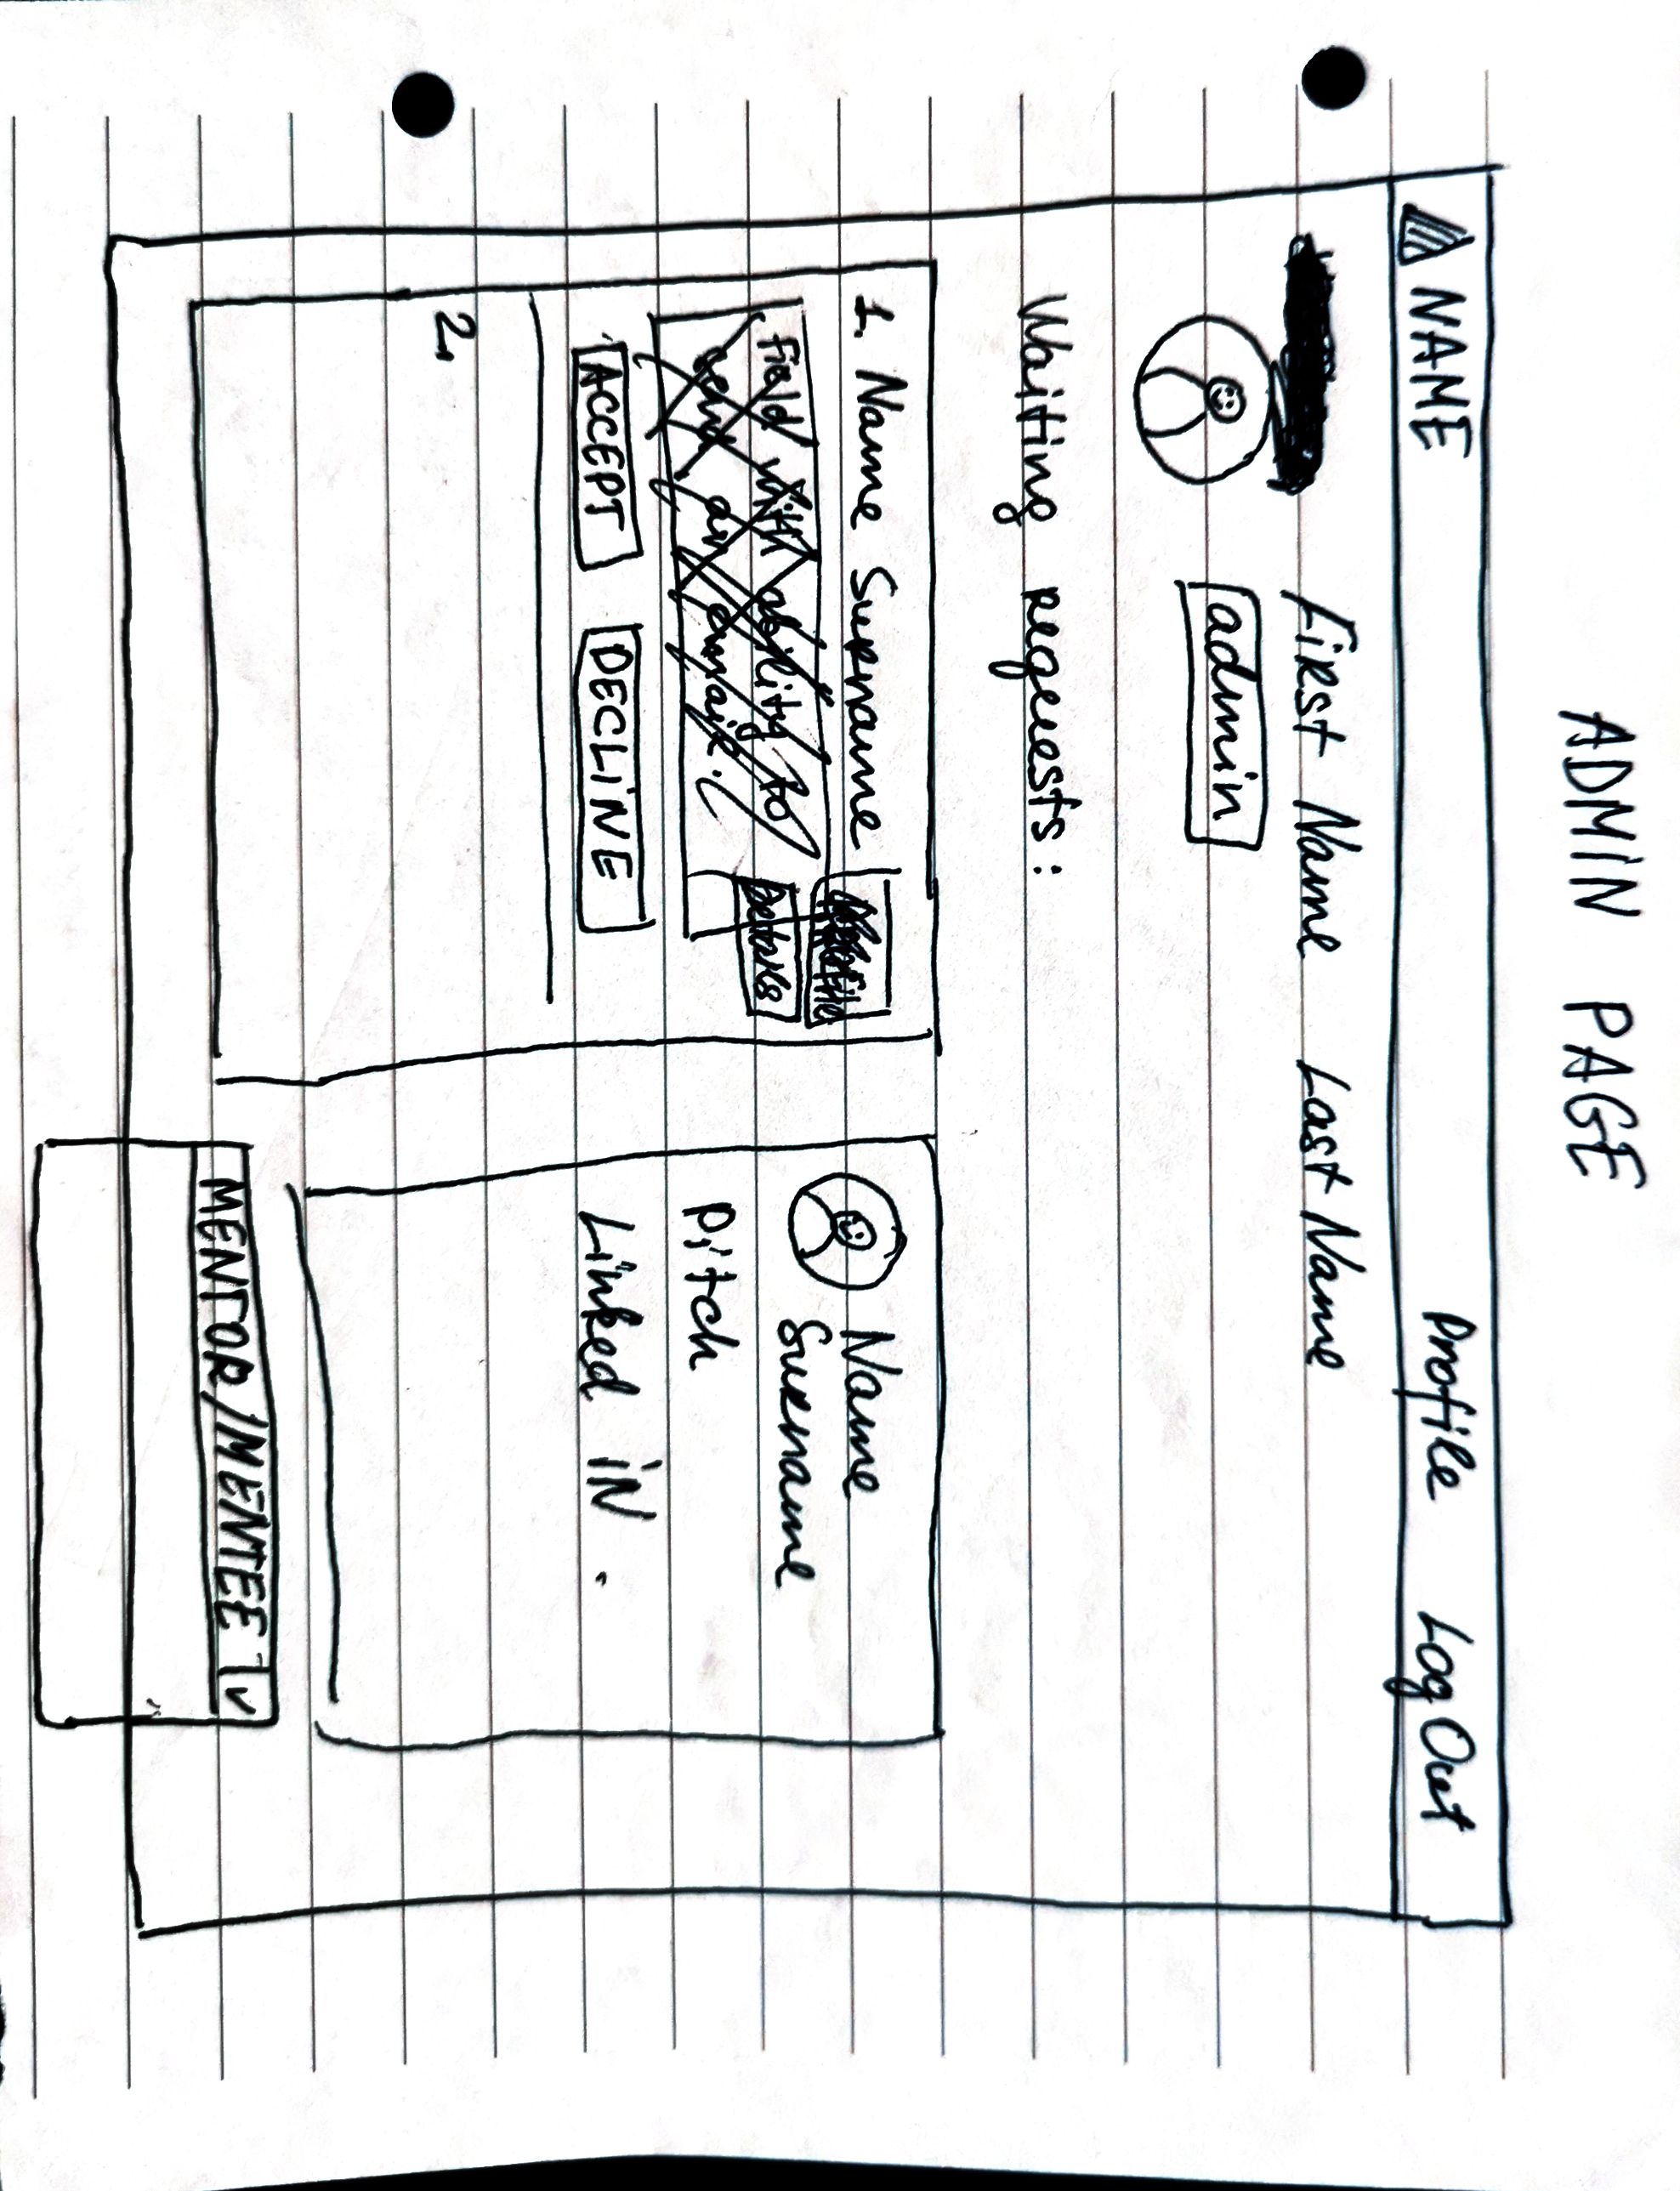 ADMIN PAGE
NAME Profile Log Out
First Name Last Name
admin
Waiting requests:
1. Name Surname
Profile
Field with ability to
send an email.
Details
ACCEPT DECLINE
2.
Name
Surname
Pitch
Linked IN.
MENTOR/MENTEE